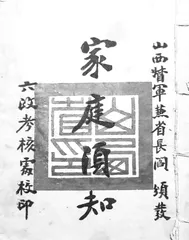 山西督軍兼省長閻 頒發
家庭須知
六政考核處校印